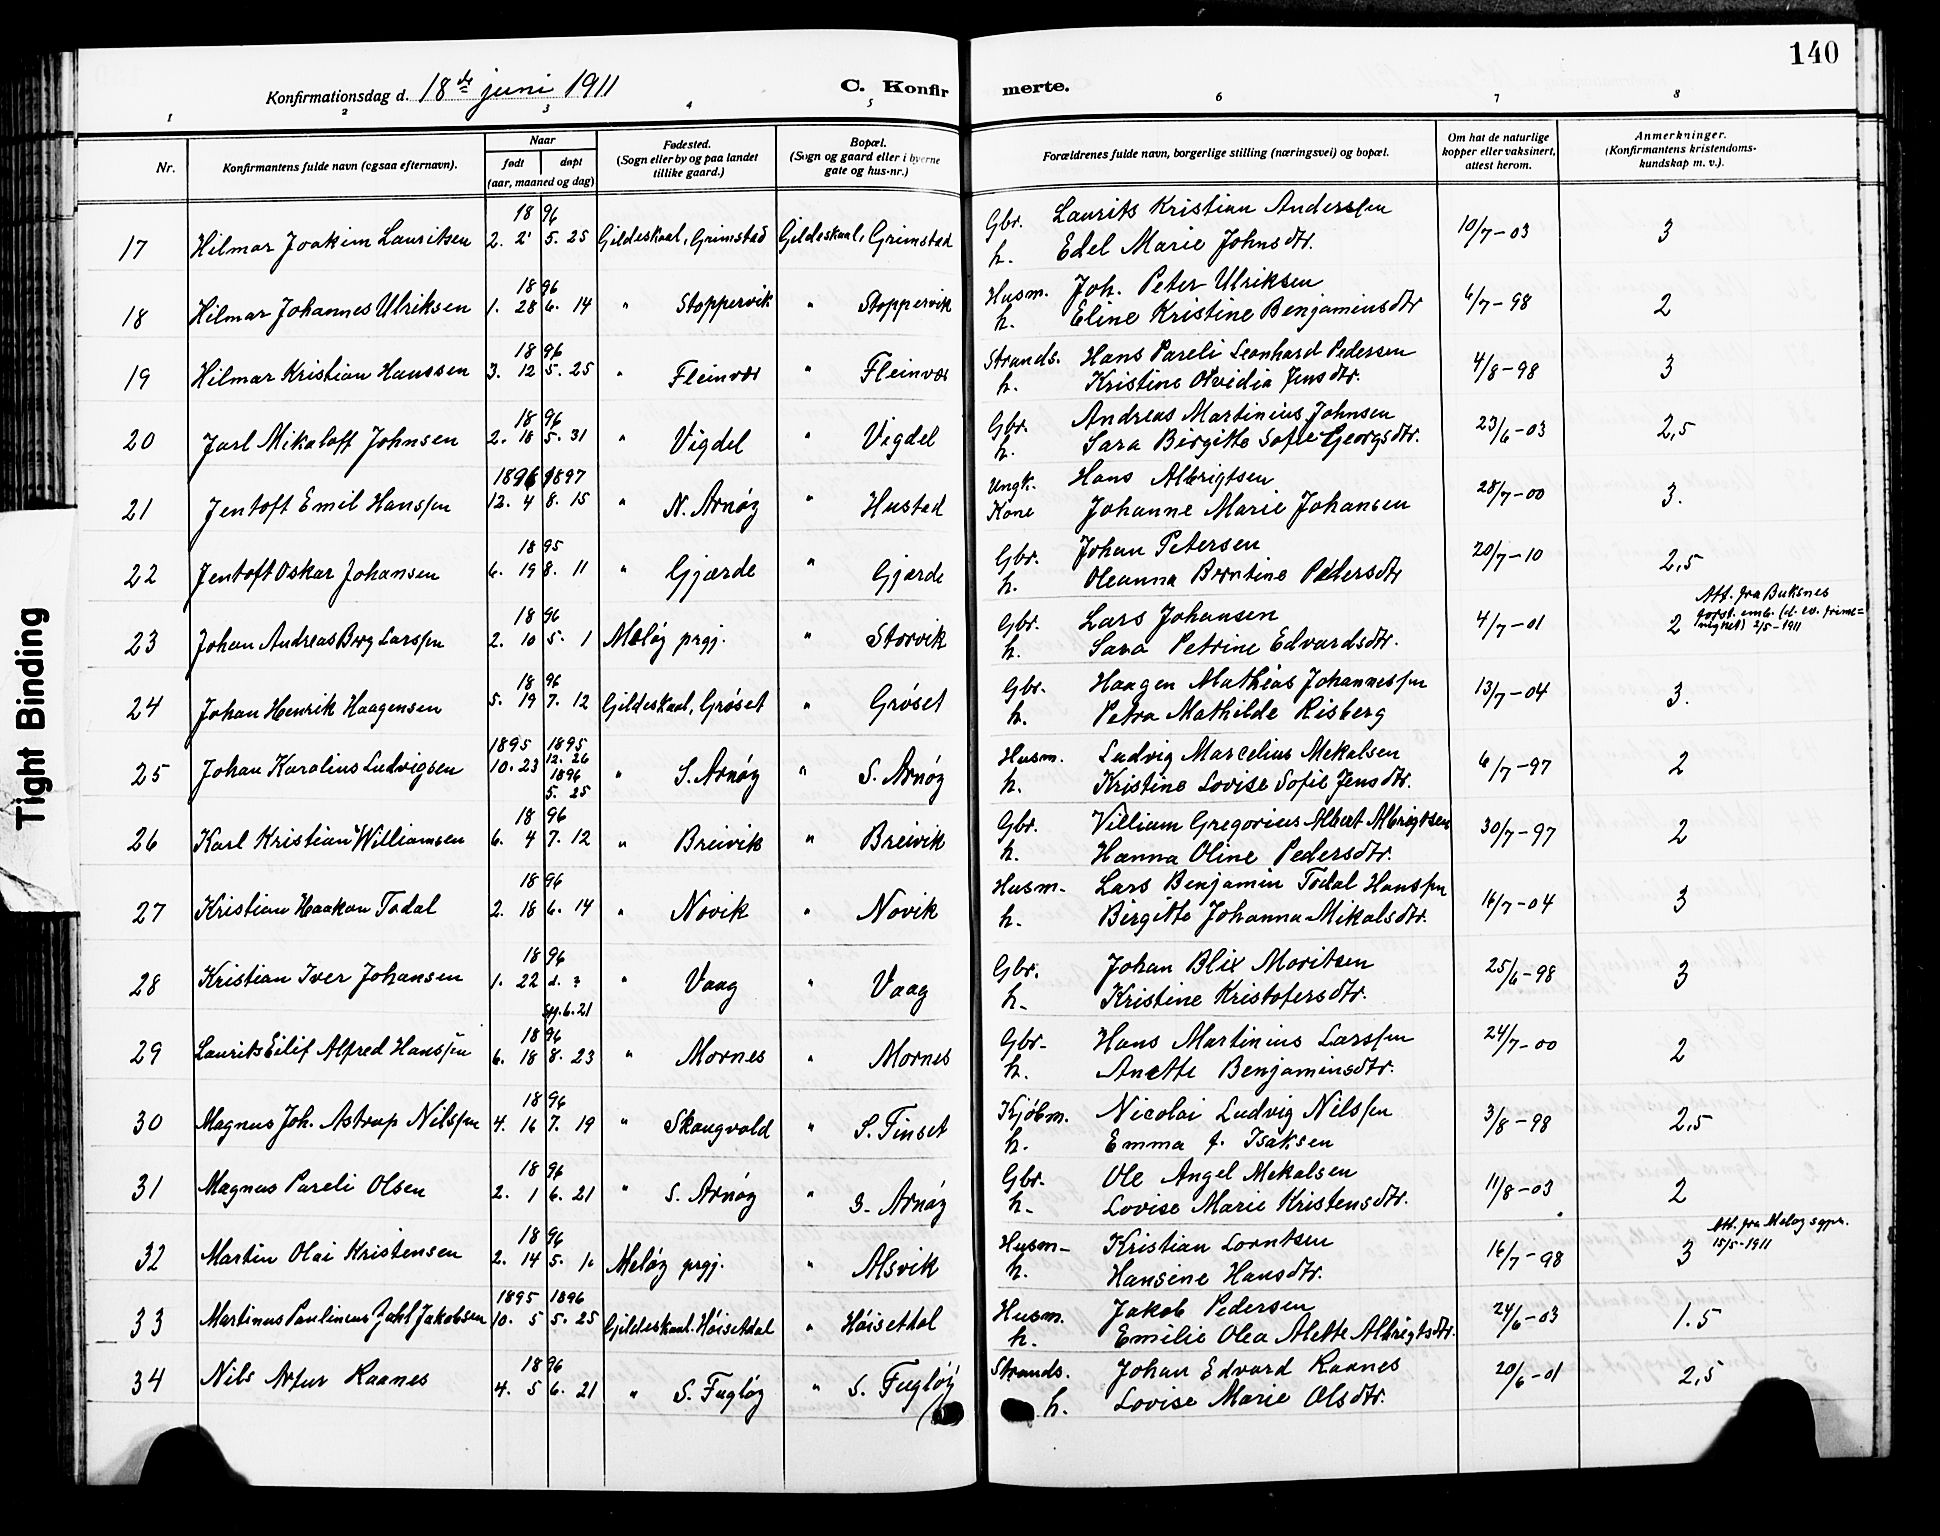 140
Konfirmationsdag d. 18de juni 1911
C. Konfirmerte.
1 2 3 4 5 6 7 8
Nr.
Konfirmantens fulde navn (ogsaa efternavn).
Naar
født døpt
(aar, maaned og dag)
Fødested.
(Sogn eller by og paa landet
tillike gaard.)
Bopæl.
(Sogn og gaard eller i byerne
gate og hus-nr.)
Forældrenes fulde navn, borgerlige stilling (næringsvei) og bopæl.
Om hat de naturlige
kopper eller vaksinert,
attest herom.
Anmerkninger.
(Konfirmantens kristendoms-
kundskap m. v.).
1896 Gbr. Laurits Kristian Anderssen
17 Hilmar Joakim Lauritsen 2. 2 5. 25 Gildeskaal, Grimstad Gildeskaal, Grimstad 10/7-03 3
h. Edel Marie Johnsdtr.
1896 Husm. Joh. Peter Ulriksen
18 Hilmar Johannes Ulriksen 1. 28 6. 14 " Stoppervik " Stoppervik 6/7-98 2
h. Eline Kristine Benjaminsdtr
1896 Strands. Hans Pareli Leonhard Pedersen
19 Hilmar Kristian Hanssen 3. 12 5. 25 " Fleinvær " Fleinvær 4/8-98 3
h. Kristine Olvidia Jensdtr.
1896 Gbr. Andreas Martinius Johnsen
20 Jarl Mikaloft Johnsen 2. 18 5. 31 " Vigdel " Vigdel 23/6-03 2,5
h. Sara Birgitte Sofie Georgsdtr.
1896 1897 Ungk. Hans Albrigtsen
21 Jentoft Emil Hanssen 12. 4 8. 15 " N. Arnøy " Hustad 28/7-00 3.
Kone Johanne Marie Johansen
1895 Gbr. Johan Petersen
22 Jentoft Oskar Johansen 6. 19 8. 11 " Gjærde " Gjærde 20/7-10 2,5
h. Oleanna Berntine Pedersdtr
1896 Gbr. Lars Johansen Att. fra Buksnes
23 Johan Andreas Berg Larssen 2. 10 5. 1 Meløy prgj. " Storvik 4/7-01 2
h. Sara Petrine Edvardsdtr. 2/5-1911
1896 Gbr. Haagen Mathias Johannessen
24 Johan Henrik Haagensen 5. 19 7. 12 Gildeskaal, Grøset " Grøset 13/7-04 3.
h. Petra Mathilde Risberg
1895 1895 Husm. Ludvig Marcelius Mekalsen
25 Johan Karolius Ludvigsen 10. 23 12. 26 " S. Arnøy " S. Arnøy 6/7-97 2
1896 5. 25 h. Kristine Lovise Sofie Jensdtr.
1896 Gbr. Villiam Gregorius Albert Albrigtsen
26 Karl Kristian Williamsen 6. 4 7. 12 " Breivik " Breivik 30/7-97 2
h. Hanna Oline Pedersdtr.
1896 Husm. Lars Benjamin Todal Hanssen
27 Kristian Haakon Todal 2. 18 6. 14 " Novik " Novik 16/7-04 3
h. Birgitte Johanna Mikalsdtr.
1896 Gbr. Johan Blix Moritsen
28 Kristian Iver Johansen 1. 22 2. ? " Vaag " Vaag 25/6-98 3
6. 21 h. Kristine Kristofersdtr.
1896 Gbr. Hans Martinius Larssen
29 Laurits Eilif Alfred Hanssen 6. 18 8. 23 " Mornes " Mornes 24/7-00 2
h. Anette Benjaminsdtr.
1896 Kjøbm. Nicolai Ludvig Nilssen
30 Magnus Joh. Astrup Nilssen 4. 16 7. 19 " Skaugvold " S. Finset 3/8-98 2,5
h. Emma f. Isaksen
1896 Gbr. Ole Angel Mekalsen
31 Magnus Pareli Olsen 2. 1 6. 21 " S. Arnøy " S. Arnøy 11/8-03 2
h. Lovise Marie Kristensdtr.
1896 Husm. Kristian Lorntsen Att. fra Meløy sgpr.
32 Martin Olai Kristensen 2. 14 5. 10 Meløy prgj. " Alsvik 16/7-98 3 15/5-1911
h. Hansine Hansdtr.
1895 1896 Husm. Jakob Pedersen
33 Martinus Paulineus Dahl Jakobsen 10. 5 5. 25 Gildeskaal. Høisetdal " Høisetdal 24/6-03 1.5
h. Emilie Olea Alette Albrigtsdtr.
1896 Strands. Johan Edvard Raanes
34 Nils Artur Raanes 4. 5 6. 21 " S. Fugløy " S. Fugløy 20/6-01 2,5
h. Lovise Marie Olsdtr.
Tight Binding